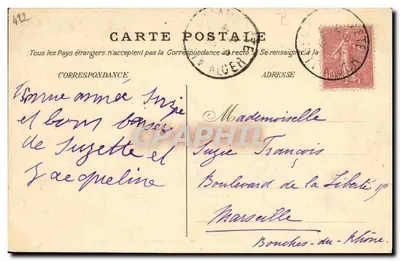 492
CARTE POSTALE
Tous les Pays étrangers n'acceptent pas la Correspondance au recto (Se renseigner à la
CORRESPONDANCE
ADRESSE
Bonne année Suzie
et bons baisers
de Suzette et
Jacqueline
Mademoiselle
Suzie François
Boulevard de la Liberté
Marseille
Bouches-du-Rhône
CPAPHIL
ALGER